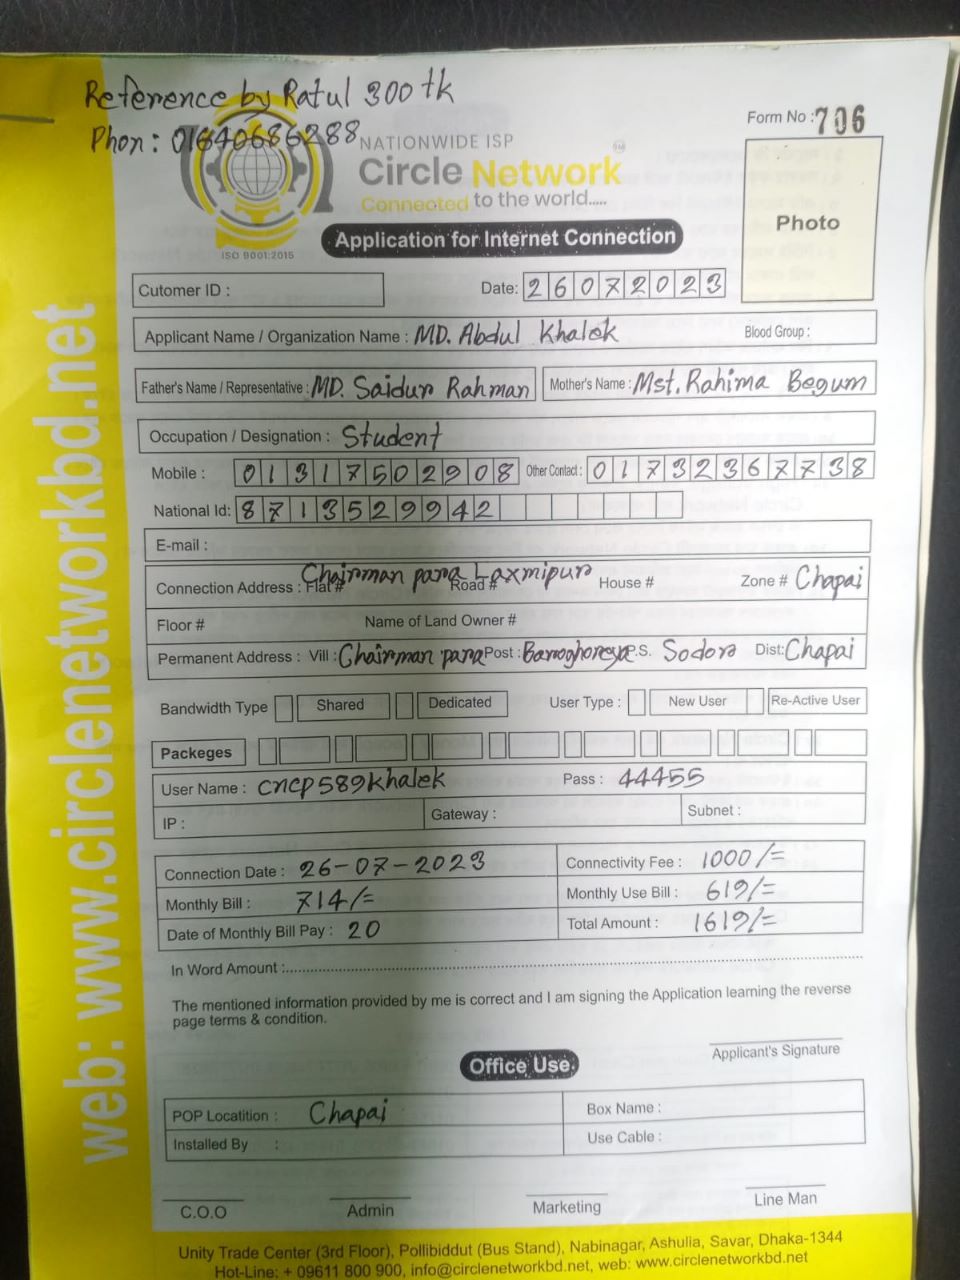 Reference by Ratul 300 tk
Phon: 01640686288
NATIONWIDE ISP
Circle Network TM
Connected to the world.....
ISO 9001:2015
Form No : 706
Photo
Application for Internet Connection
Cutomer ID :
Date: 26072023
Applicant Name / Organization Name : MD. Abdul Khalek Blood Group :
Father's Name / Representative : MD. Saidur Rahman Mother's Name : Mst. Rahima Begum
Occupation / Designation : Student
Mobile : 01317502908 Other Contact : 01732367738
National Id: 8713529942
E-mail :
Connection Address : Flat # Chairman para Laxmipur Road # House # Zone # Chapai
Floor # Name of Land Owner #
Permanent Address : Vill : Chairman para Post : Baroghoreya P.S. Sodor Dist: Chapai
Bandwidth Type Shared Dedicated User Type : New User Re-Active User
Packeges
User Name : cncp589khalek Pass : 44455
IP : Gateway : Subnet :
Connection Date : 26-07-2023 Connectivity Fee : 1000/=
Monthly Bill : 714/= Monthly Use Bill : 619/=
Date of Monthly Bill Pay : 20 Total Amount : 1619/=
In Word Amount :
The mentioned information provided by me is correct and I am signing the Application learning the reverse
page terms & condition.
Applicant's Signature
Office Use.
POP Locatition : Chapai Box Name :
Installed By : Use Cable :
C.O.O Admin Marketing Line Man
Unity Trade Center (3rd Floor), Pollibiddut (Bus Stand), Nabinagar, Ashulia, Savar, Dhaka-1344
Hot-Line: + 09611 800 900, info@circlenetworkbd.net, web: www.circlenetworkbd.net
web: www.circlenetworkbd.net